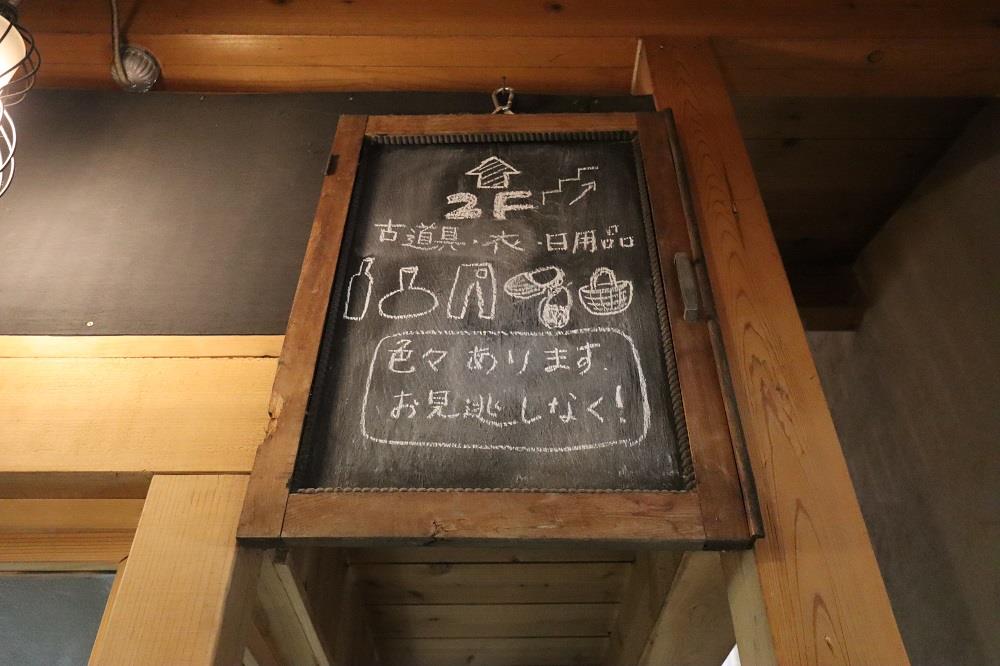 2F
古道具・衣・日用品
色々あります.
お見逃しなく!